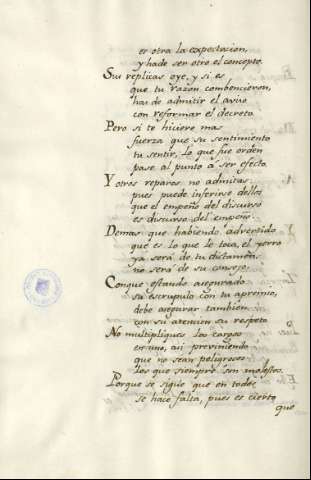 es otra la expectacion,
y hade ser otro el concepto.
Sus replicas oye, y si es
que tu razon combencieron,
has de admitir el aviso
con reformar el decreto.
Pero si te hiciere mas
fuerza que su sentimiento
tu sentir, lo que fue orden
pase al punto a ser efecto.
Y otros reparos no admitas
pues puede inferirse dellos
que el empeño del discurso
es discurso del empeño.
Demas que habiendo advertido
que es lo que le toca, el yerro
ya será de tu dictamen
no será de su consejo.
Conque estando asegurado
su escrupulo con tu apremio,
debe asegurar tambien
con su atencion su respeto
No multipliques los cargos
en uno, asi previniendo
que no sean peligrosos
los que siempre son molestos.
Porque se sigue que en todos
se hace falta, pues es cierto
que